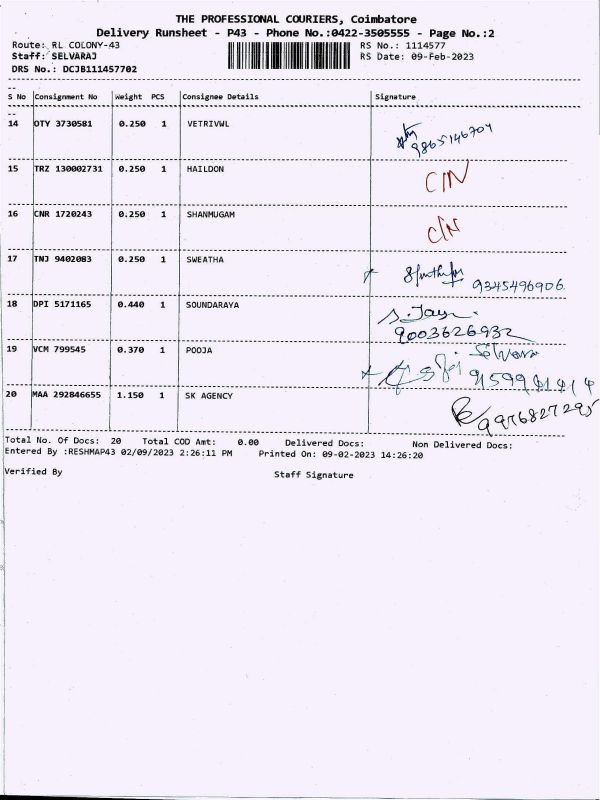 THE PROFESSIONAL COURIERS, Coimbatore
Delivery Runsheet - P43 - Phone No.:0422-3505555 - Page No.:2
Route: RL COLONY-43 RS No.: 1114577
Staff: SELVARAJ RS Date: 09-Feb-2023
DRS No.: DCJB111457702
S No Consignment No Weight PCS Consignee Details Signature
14 OTY 3730581 0.250 1 VETRIVWL
9865146704
15 TRZ 130002731 0.250 1 HAILDON C/N
16 CNR 1720243 0.250 1 SHANMUGAM C/N
17 TNJ 9402083 0.250 1 SWEATHA 9345496906
18 DPI 5171165 0.440 1 SOUNDARAYA S. Jaya
9003626932
19 VCM 799545 0.370 1 POOJA
20 MAA 292846655 1.150 1 SK AGENCY
9976827295
Total No. Of Docs: 20 Total COD Amt: 0.00 Delivered Docs: Non Delivered Docs:
Entered By :RESHMAP43 02/09/2023 2:26:11 PM Printed On: 09-02-2023 14:26:20
Verified By Staff Signature